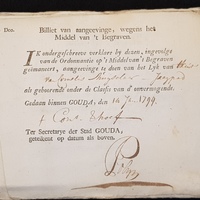 Deo.
Billiet van aangeevinge, wegens het
Middel van 't Begraven.
IK ondergeschreve verklaare by dezen, ingevolge
van de Ordonnantie op 't Middel van 't Begraven
geëmaneert, aangeevinge te doen van het Lyk van
van Cornelis
als gehoorende onder de Classis van d' onvermogende.
Gedaan binnen GOUDA, den 14 1799.
Ter Secretarye der Stad GOUDA,
getekent op datum als boven.